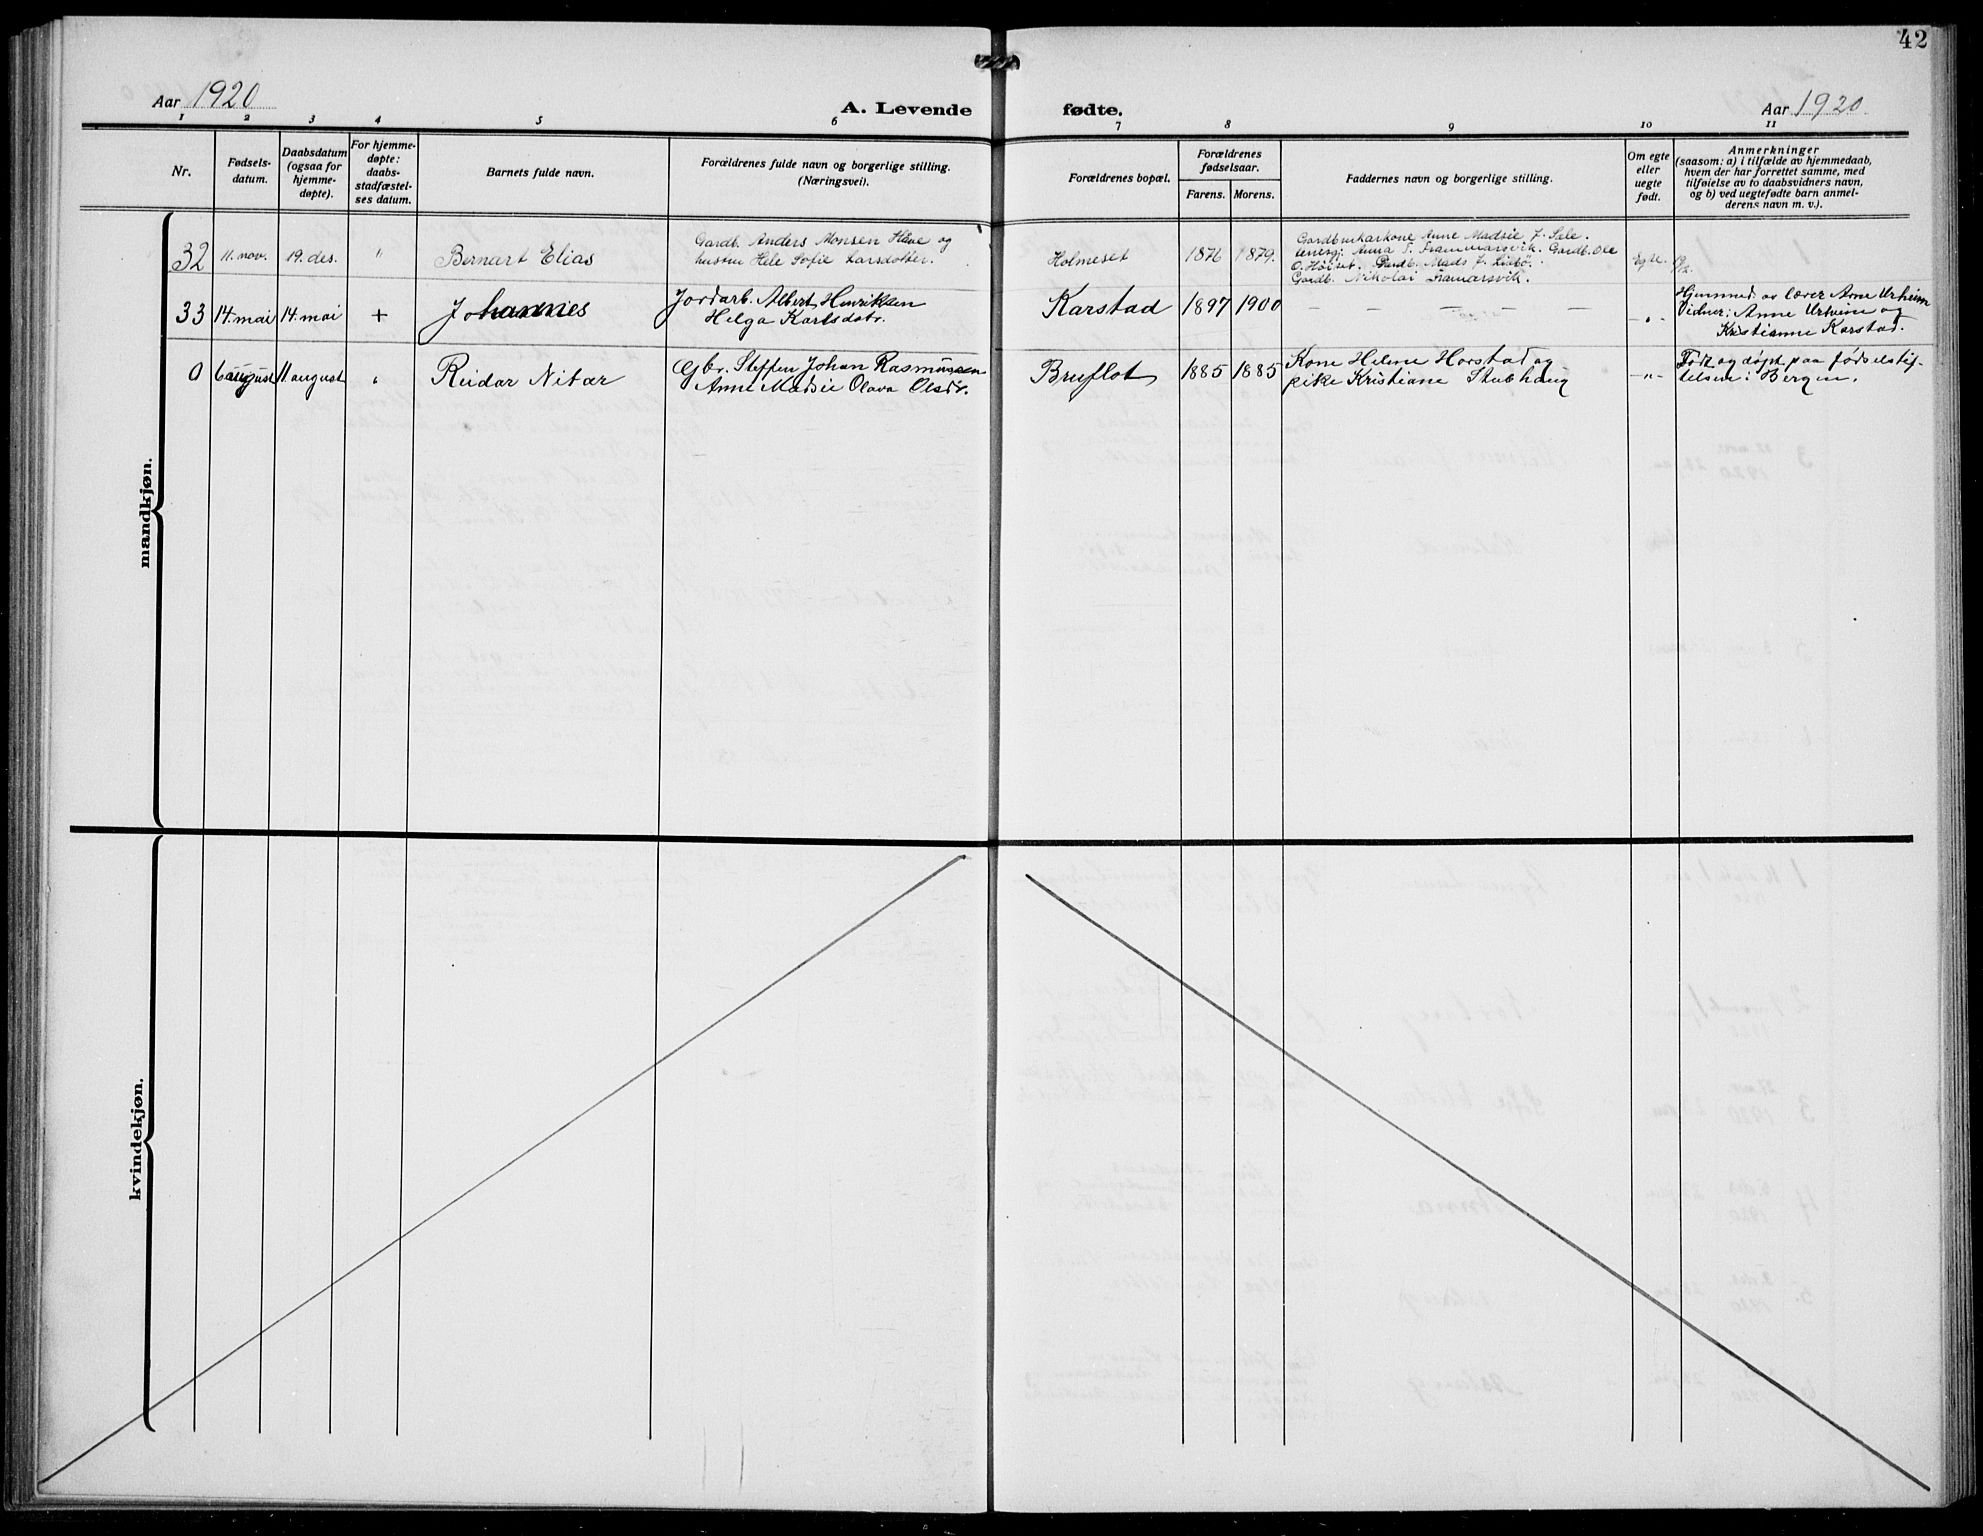 42
Aar 1920
A. Levende fødte.
Aar 1920
1 2 3 4 5 6 7 8 9 10 11
Nr.
Fødsels-
datum.
Daabsdatum
(ogsaa for
hjemme-
døpte).
For hjemme-
døpte:
daabs-
stadfæstel-
ses datum.
Barnets fulde navn.
Forældrenes fulde navn og borgerlige stilling.
(Næringsvei).
Forældrenes bopæl.
Forældrenes
fødselsaar.
Farens. Morens.
Faddernes navn og borgerlige stilling.
Om egte
eller
uegte
født.
Anmerkninger
(saasom: a) i tilfælde av hjemmedaab,
hvem der har forrettet samme, med
tilføielse av to daabsvidners navn,
og b) ved uegtefødte barn anmel-
derens navn m. v.).
mandkjøn.
32 11. nov. 19. des. " Bernart Elias
Gardb. Anders Monsen Have og
hustru Hele Sofie Larsdotter.
Holmeset 1876 1879.
Gardbrukarkone Anne Madsie J. Sele.
Anna T. Frammarsvik. Gardb. Ole
O. Høiset. Gardb. Mads J.
Gardb. Nikolai Framarsvik.
Egte. 19/12.
33 14. mai 14. mai + Johannes
Jordarb. Albert Henriksen
Helga Karlsdotr.
Karstad 1897 1900 — — — — —
-"-
Hjemmed. av lærer Arne Urheim
Vidner: Anne Urheim og
Kristianne Karstad.
0 6 august 11 august " Reidar Nitar
Gbr. Steffen Johan Rasmussen
Anne Madsie Olava Olsdtr.
Bruflot 1885 1885
Kone Helene Horstad og
pike Kristiane Stubhaug
-"-
Født og døpt paa fødselstif-
telsen i Bergen.
kvindekjøn.